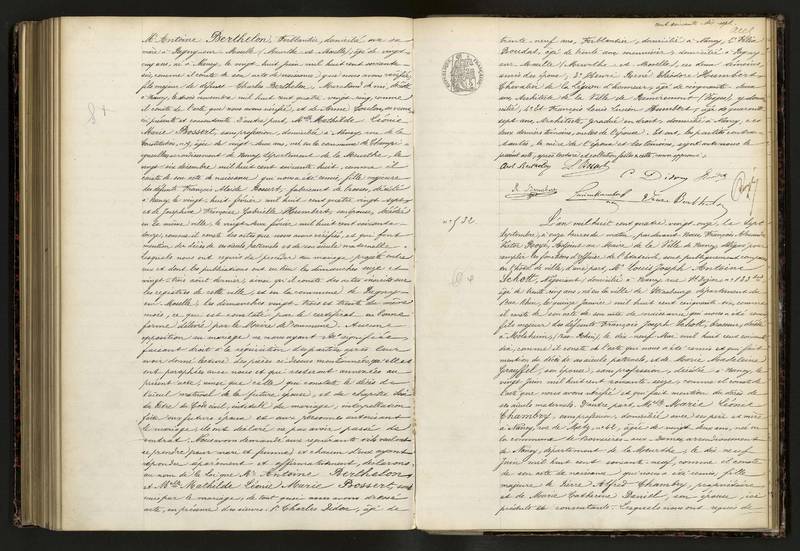 Mr. Antoine Berthelon, Ferblantier, domicilié avec sa
mère à Pagny-sur-Moselle (Meurthe et Moselle), âgé de vingt
cinq ans, né à Nancy, le vingt huit juin mil huit cent soixante
six, comme il conste de son acte de naissance que nous avons vérifié,
fils majeur de défunt Charles Berthelon, Marchand de vin, décédé
à Nancy, le deux novembre mil huit cent quatre vingt cinq, comme
il conste de l'acte que nous avons vérifié, et de Anne
présente et consentante. D'autre part, Mlle Mathilde Léonie
Marie Bossert, sans profession, domiciliée à Nancy, rue de la
Constitution, n° 9, âgée de vingt deux ans, née en la commune de
arrondissement de Nancy, Département de la Meurthe, le
vingt six décembre mil huit cent soixante huit, comme il
conste de son acte de naissance qui nous a été remis, fille majeure
des défunts François Bossert, fabricant de brosses, décédé
à Nancy, le vingt huit février mil huit cent quatre vingt sept,
et de Joséphine Françoise Gabrielle Humbert, son épouse, décédée
en la même ville, le vingt deux février mil huit cent soixante
comme il conste des actes que nous avons vérifiés, et qui font
mention des décès de ses aïeuls paternels et de son aïeule maternelle.
Lesquels nous ont requis de procéder au mariage projeté entre
eux et dont les publications ont eu lieu les dimanches seize et
vingt trois août dernier, ainsi qu'il conste des actes inscrits sur
les registres de cette ville, et en la commune de Pagny-
sur-Moselle, les dimanches vingt trois et trente du même
mois, ce qui est constaté par le certificat en bonne
forme délivré par le Maire de Commune. Aucune
opposition au mariage ne nous ayant été signifiée
faisant droit à la réquisition des parties, après leur
avoir donné lecture des pièces ci-dessus mentionnées, qu'elles
ont paraphées avec nous et qui resteront annexées au
présent acte, ainsi que celle qui constate le décès de
l'aïeul maternel de la future épouse, et du chapitre six
du titre du Code Civil, intitulé du mariage, interpellation
faite aux futurs époux et aux personnes autorisant
le mariage, ils ont déclaré ne pas avoir passé de
contrat. Nous avons demandé aux requérants s'ils veulent
se prendre pour mari et femme, et chacun d'eux ayant
répondu séparément et affirmativement, déclarons
au nom de la loi, que Mr. Antoine Berthelon
et Mlle Mathilde Léonie Marie Bossert, sont
unis par le mariage, de tout quoi nous avons dressé
acte, en présence des sieurs: 1° Charles Didon, âgé de
trente neuf ans, Ferblantier, domicilié à Nancy, 2°
âgé de trente ans, menuisier, domicilié à Pagny
sur Moselle (Meurthe et Moselle), ces deux témoins,
amis des époux, 3° Henri René Théodore Humbert,
Chevalier de la Légion d'honneur, âgé de cinquante deux
ans, Architecte de la Ville de Remiremont (Vosges), y domi-
cilié, 4° et François Louis Lucien Humbert, âgé de quarante
sept ans, Architecte, gradué en droit, domicilié à Nancy, ces
deux derniers témoins, oncles de l'épouse. Et ont, les parties contrac-
tantes, la mère de l'époux et les témoins, signé avec nous le
présent acte, après lecture et collation faites à cette
C. Didon
n° 532
L'an mil huit cent quatre vingt onze, le sept
septembre, à onze heures du matin, par devant Nous, François Alexandre
Victor Adjoint au Maire de la Ville de Nancy, délégué pour
remplir les fonctions d'officier de l'état civil, sont publiquement comparus
en l'hôtel de ville, d'une part, Mr. Louis Joseph Antoine
Schott, Négociant, domicilié à Nancy, rue St Dizier, n° 123,
âgé de trente cinq ans, né en la ville de Strasbourg, département du
Bas-Rhin, le quinze janvier mil huit cent cinquante six, comme
il conste de son acte de naissance qui nous a été remis,
fils majeur des défunts François Joseph Schott, Brasseur, décédé
à Molsheim (Bas-Rhin), le dix neuf mai mil huit cent soixante
dix, comme il conste de l'acte qui nous a été remis et qui fait
mention du décès de ses aïeuls paternels, et de Marie Madeleine
Grauffel, son épouse, sans profession, décédée à Nancy, le
vingt juin mil huit cent soixante seize, comme il conste de
l'acte que nous avons vérifié et qui fait mention du décès de
ses aïeuls maternels. D'autre part, Mlle Marie Léonie
Chambry, sans profession, domiciliée avec ses père et mère
à Nancy, rue de Metz, n° 62, âgée de vingt deux ans, née en
la commune de Bouxières-aux-Dames, arrondissement
de Nancy, département de la Meurthe, le dix neuf
juin mil huit cent soixante neuf, comme il conste
de son acte de naissance qui nous a été remis, fille
majeure de Pierre Alfred Chambry, propriétaire
et de Marie Catherine Daniel, son épouse, ici
présents et consentants. Lesquels nous ont requis de